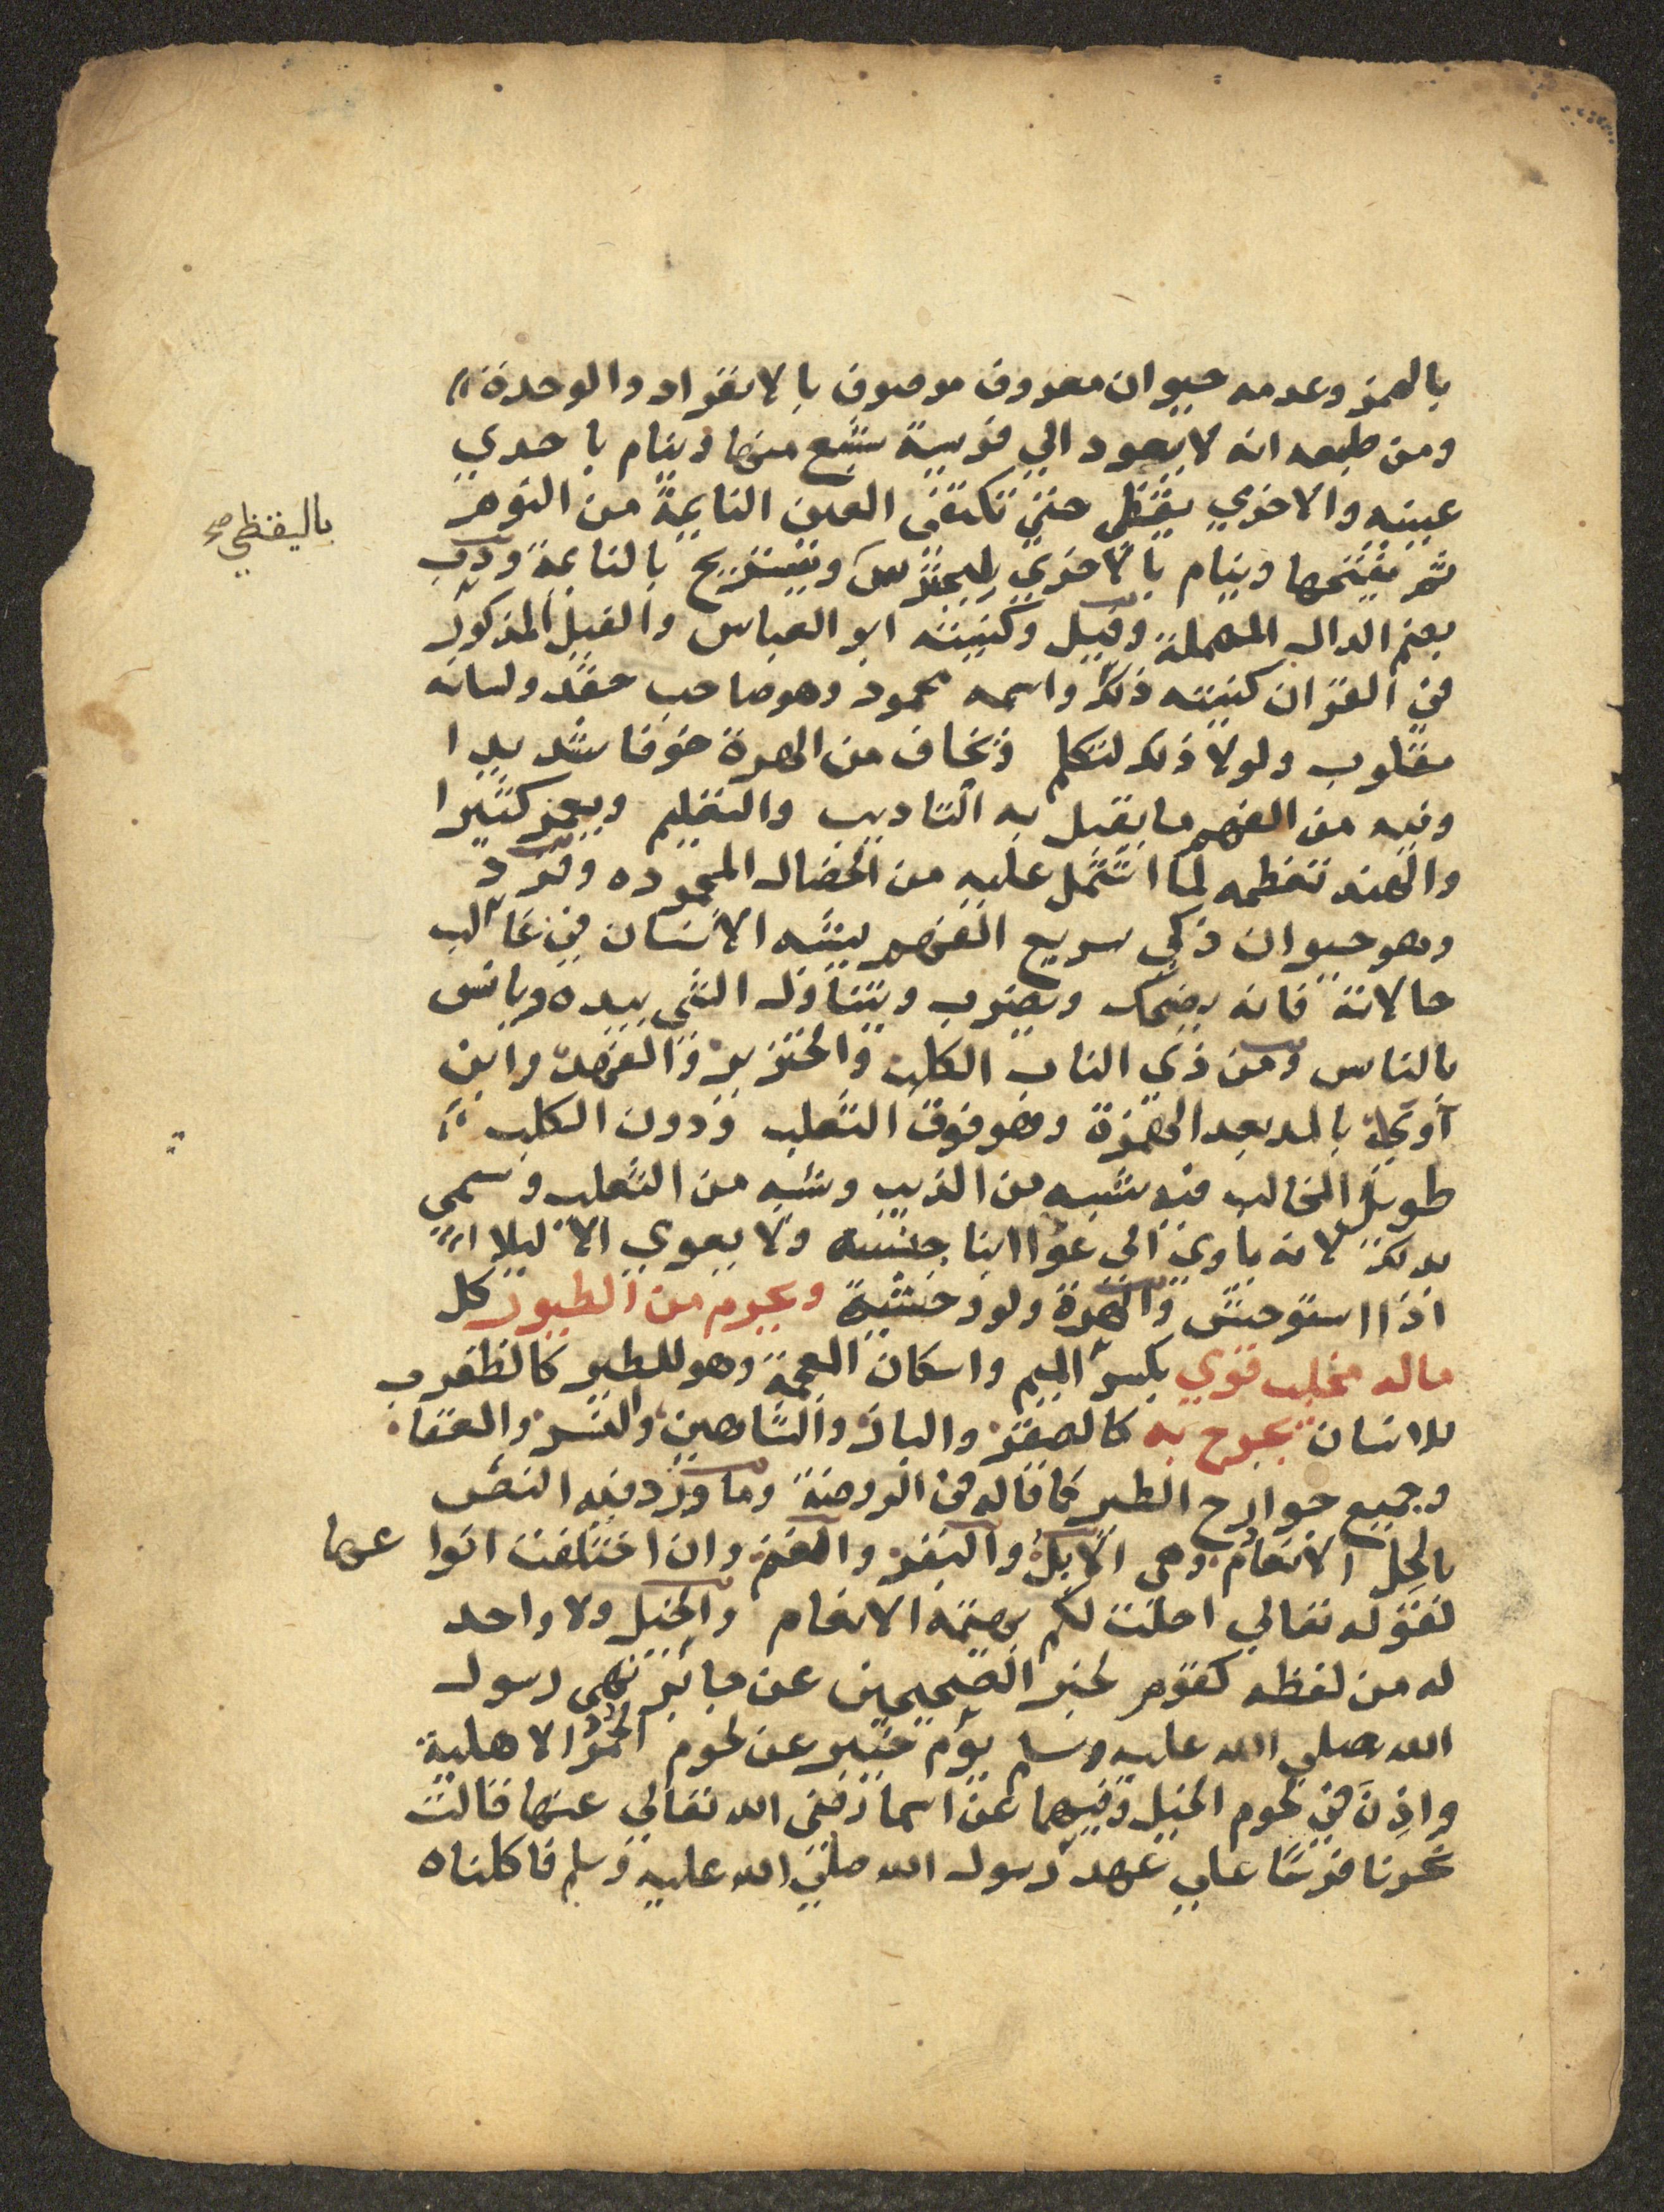 بالهمز وعدمه حيوان معروف موصوف بالانفراد والوحدة
ومن طبعه انه لا يعود الي فريسة شبع منها وينام باحدي
عينيه والاخري يقظي حتي تكتفي العين النايمة من النوم
ثم يفتحها وينام بالاخري ليحترس باليقظي ويستريح بالنايمة ودب
بضم الدال المهملة وفيل وكنيته ابو العباس والفيل المذكور
في القران كنيته ذلك واسمه محمود وهو صاحب حقد ولسانه
مقلوب ولولا ذلك لتكلم ويخاف من الهرة خوفا شديدا
وفيه من الفهم ما يقبل به التاديب والتعليم ويعمر كثيرا
والهند تعظمه لما اشتمل عليه من الخصال المحموده وقرد
وهو حيوان ذكي سريع الفهم يشبه الانسان في غالب
حالاته فانه يضحك ويضرب ويتناول الشي بيده ويانس
بالناس ومن ذي الناب الكلب والخنزير والفهد وابن
آوي بالمد بعد الهمزة وهو فوق الثعلب ودون الكلب
طويل المخالب فيه شبه من الذيب وشبه من الثعلب وسمي
بذلك لانه ياوي الي عوا ابنا جنسه ولا يعوي الا ليلا
اذا استوحش والهرة ولو وحشية ويحرم من الطيور كل
ماله مخلب قوي بكسر الميم واسكان المعجمة وهو للطير كالظفر
للانسان يجرح به كالصقر والباز والشاهين والنسر والعقاب
وجميع جوارح الطير كما قاله في الروضة وما ورد فيه النص
بالحل الانعام وهي الابل والبقر والغنم وان اختلفت انواعها
لقوله تعالي احلت لكم بهيمة الانعام والخيل ولا واحد
له من لفظه كقوم لخبر الصحيحين عن جابر نهي رسول
الله صلي الله عليه وسلم يوم خيبر عن لحوم الحمر الاهلية
واذن في لحوم الخيل وفيهما عن اسما رضي الله تعالي عنها قالت
نحرنا فرسا علي عهد رسول الله صلي الله عليه وسلم فاكلناه